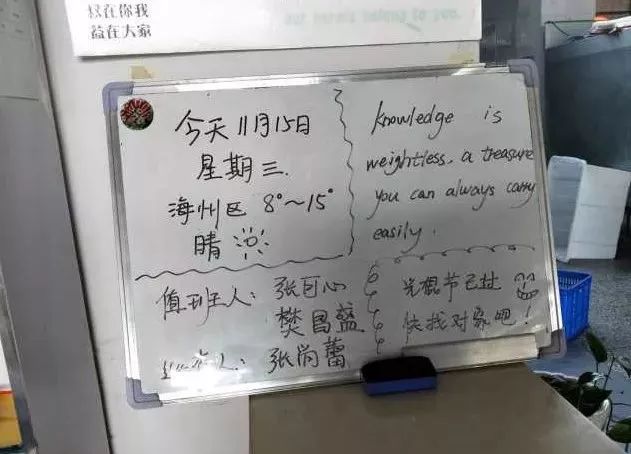 尽在你我
益在大家
our
belong to you.
今天11月15日
星期三.
海州区 8°~15°
晴
knowledge is
weightless, a treasure
you can always carry
easily.
值班主人: 张巨心
樊昌益
人: 张尚蕾
光棍节已过
快找对象吧!